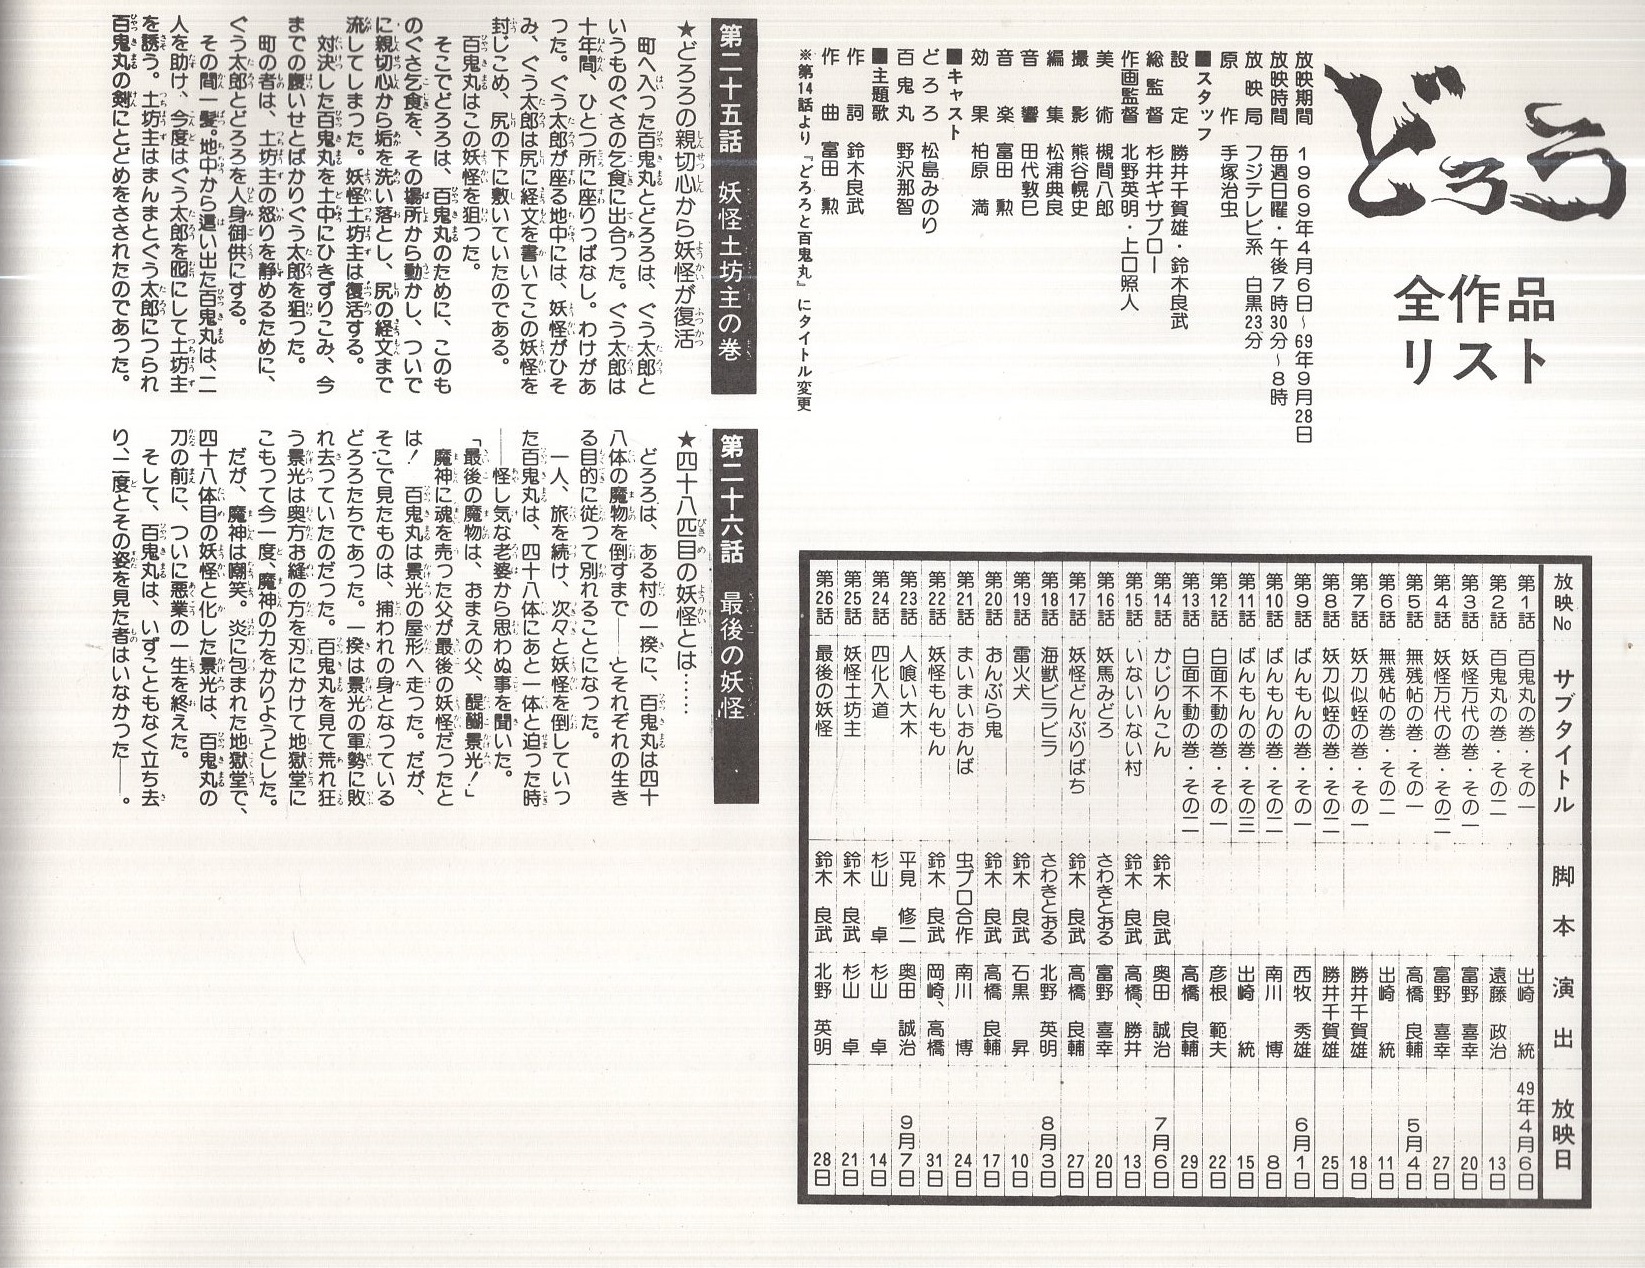 どろろ
全作品
リスト
放映期間　1969年4月6日～69年9月28日
放映時間　毎週日曜・午後7時30分～8時
放映局　フジテレビ系　白黒23分
原作　手塚治虫
■スタッフ
設定　勝井千賀雄・鈴木良武
総監督　杉井ギサブロー
作画監督　北野英明・上口照人
美術　槻間八郎
撮影　熊谷幌史
編集　松浦典良
音響　田代敦巳
音楽　富田勲
効果　柏原満
■キャスト
どろろ　松島みのり
百鬼丸　野沢那智
■主題歌
作詞　鈴木良武
作曲　富田勲
※第14話より『どろろと百鬼丸』にタイトル変更
放映No　サブタイトル　脚本　演出　放映日
第1話　百鬼丸の巻・その一　出崎統　49年4月6日
第2話　百鬼丸の巻・その二　遠藤政治　13日
第3話　妖怪万代の巻・その一　富野喜幸　20日
第4話　妖怪万代の巻・その二　富野喜幸　27日
第5話　無残帖の巻・その一　高橋良輔　5月4日
第6話　無残帖の巻・その二　出崎統　11日
第7話　妖刀似蛭の巻・その一　勝井千賀雄　18日
第8話　妖刀似蛭の巻・その二　勝井千賀雄　25日
第9話　ばんもんの巻・その一　西牧秀雄　6月1日
第10話　ばんもんの巻・その二　南川博　8日
第11話　ばんもんの巻・その三　出崎統　15日
第12話　白面不動の巻・その一　彦根範夫　22日
第13話　白面不動の巻・その二　高橋良輔　29日
第14話　かじりんこん　鈴木良武　奥田誠治　7月6日
第15話　いないいない村　鈴木良武　高橋、勝井　13日
第16話　妖馬みどろ　さわきとおる　富野喜幸　20日
第17話　妖怪どんぶりばち　鈴木良武　高橋良輔　27日
第18話　海獣ビラビラ　さわきとおる　北野英明　8月3日
第19話　雷火犬　鈴木良武　石黒昇　10日
第20話　おんぶら鬼　鈴木良武　高橋良輔　17日
第21話　まいまいおんば　虫プロ合作　南川博　24日
第22話　妖怪もんもん　鈴木良武　岡崎、高橋　31日
第23話　人喰い大木　平見修二　奥田誠治　9月7日
第24話　四化入道　杉山卓　杉山卓　14日
第25話　妖怪土坊主　鈴木良武　杉山卓　21日
第26話　最後の妖怪　鈴木良武　北野英明　28日
第二十五話　妖怪土坊主の巻
★どろろの親切心から妖怪が復活
町へ入った百鬼丸とどろろは、ぐう太郎と
いうものぐさの乞食に出合った。ぐう太郎は
十年間、ひとつ所に座りっぱなし。わけがあ
った。ぐう太郎が座る地中には、妖怪がひそ
み、ぐう太郎は尻に経文を書いてこの妖怪を
封じこめ、尻の下に敷いていたのである。
百鬼丸はこの妖怪を狙った。
そこでどろろは、百鬼丸のために、このも
のぐさ乞食を、その場所から動かし、ついで
に親切心から垢を洗い落とし、尻の経文まで
流してしまった。妖怪土坊主は復活する。
対決した百鬼丸を土中にひきずりこみ、今
までの腹いせとばかりぐう太郎を狙った。
町の者は、土坊主の怒りを静めるために、
ぐう太郎とどろろを人身御供にする。
その間一髪。地中から這い出た百鬼丸は、二
人を助け、今度はぐう太郎を囮にして土坊主
を誘う。土坊主はまんまとぐう太郎につられ
百鬼丸の剣にとどめをさされたのであった。
第二十六話　最後の妖怪
★四十八匹目の妖怪とは……
どろろは、ある村の一揆に、百鬼丸は四十
八体の魔物を倒すまで――とそれぞれの生き
る目的に従って別れることになった。
一人、旅を続け、次々と妖怪を倒していっ
た百鬼丸は、四十八体にあと一体と迫った時
――怪し気な老婆から思わぬ事を聞いた。
「最後の魔物は、おまえの父、醍醐景光！」
魔神に魂を売った父が最後の妖怪だったと
は！　百鬼丸は景光の屋形へ走った。だが、
そこで見たものは、捕われの身となっている
どろろたちであった。一揆は景光の軍勢に敗
れ去っていたのだった。百鬼丸を見て荒れ狂
う景光は奥方お縫の方を刃にかけて地獄堂に
こもって今一度、魔神の力をかりようとした。
だが、魔神は嘲笑。炎に包まれた地獄堂で、
四十八体目の妖怪と化した景光は、百鬼丸の
刀の前に、ついに悪業の一生を終えた。
そして、百鬼丸は、いずこともなく立ち去
り、二度とその姿を見た者はいなかった――。